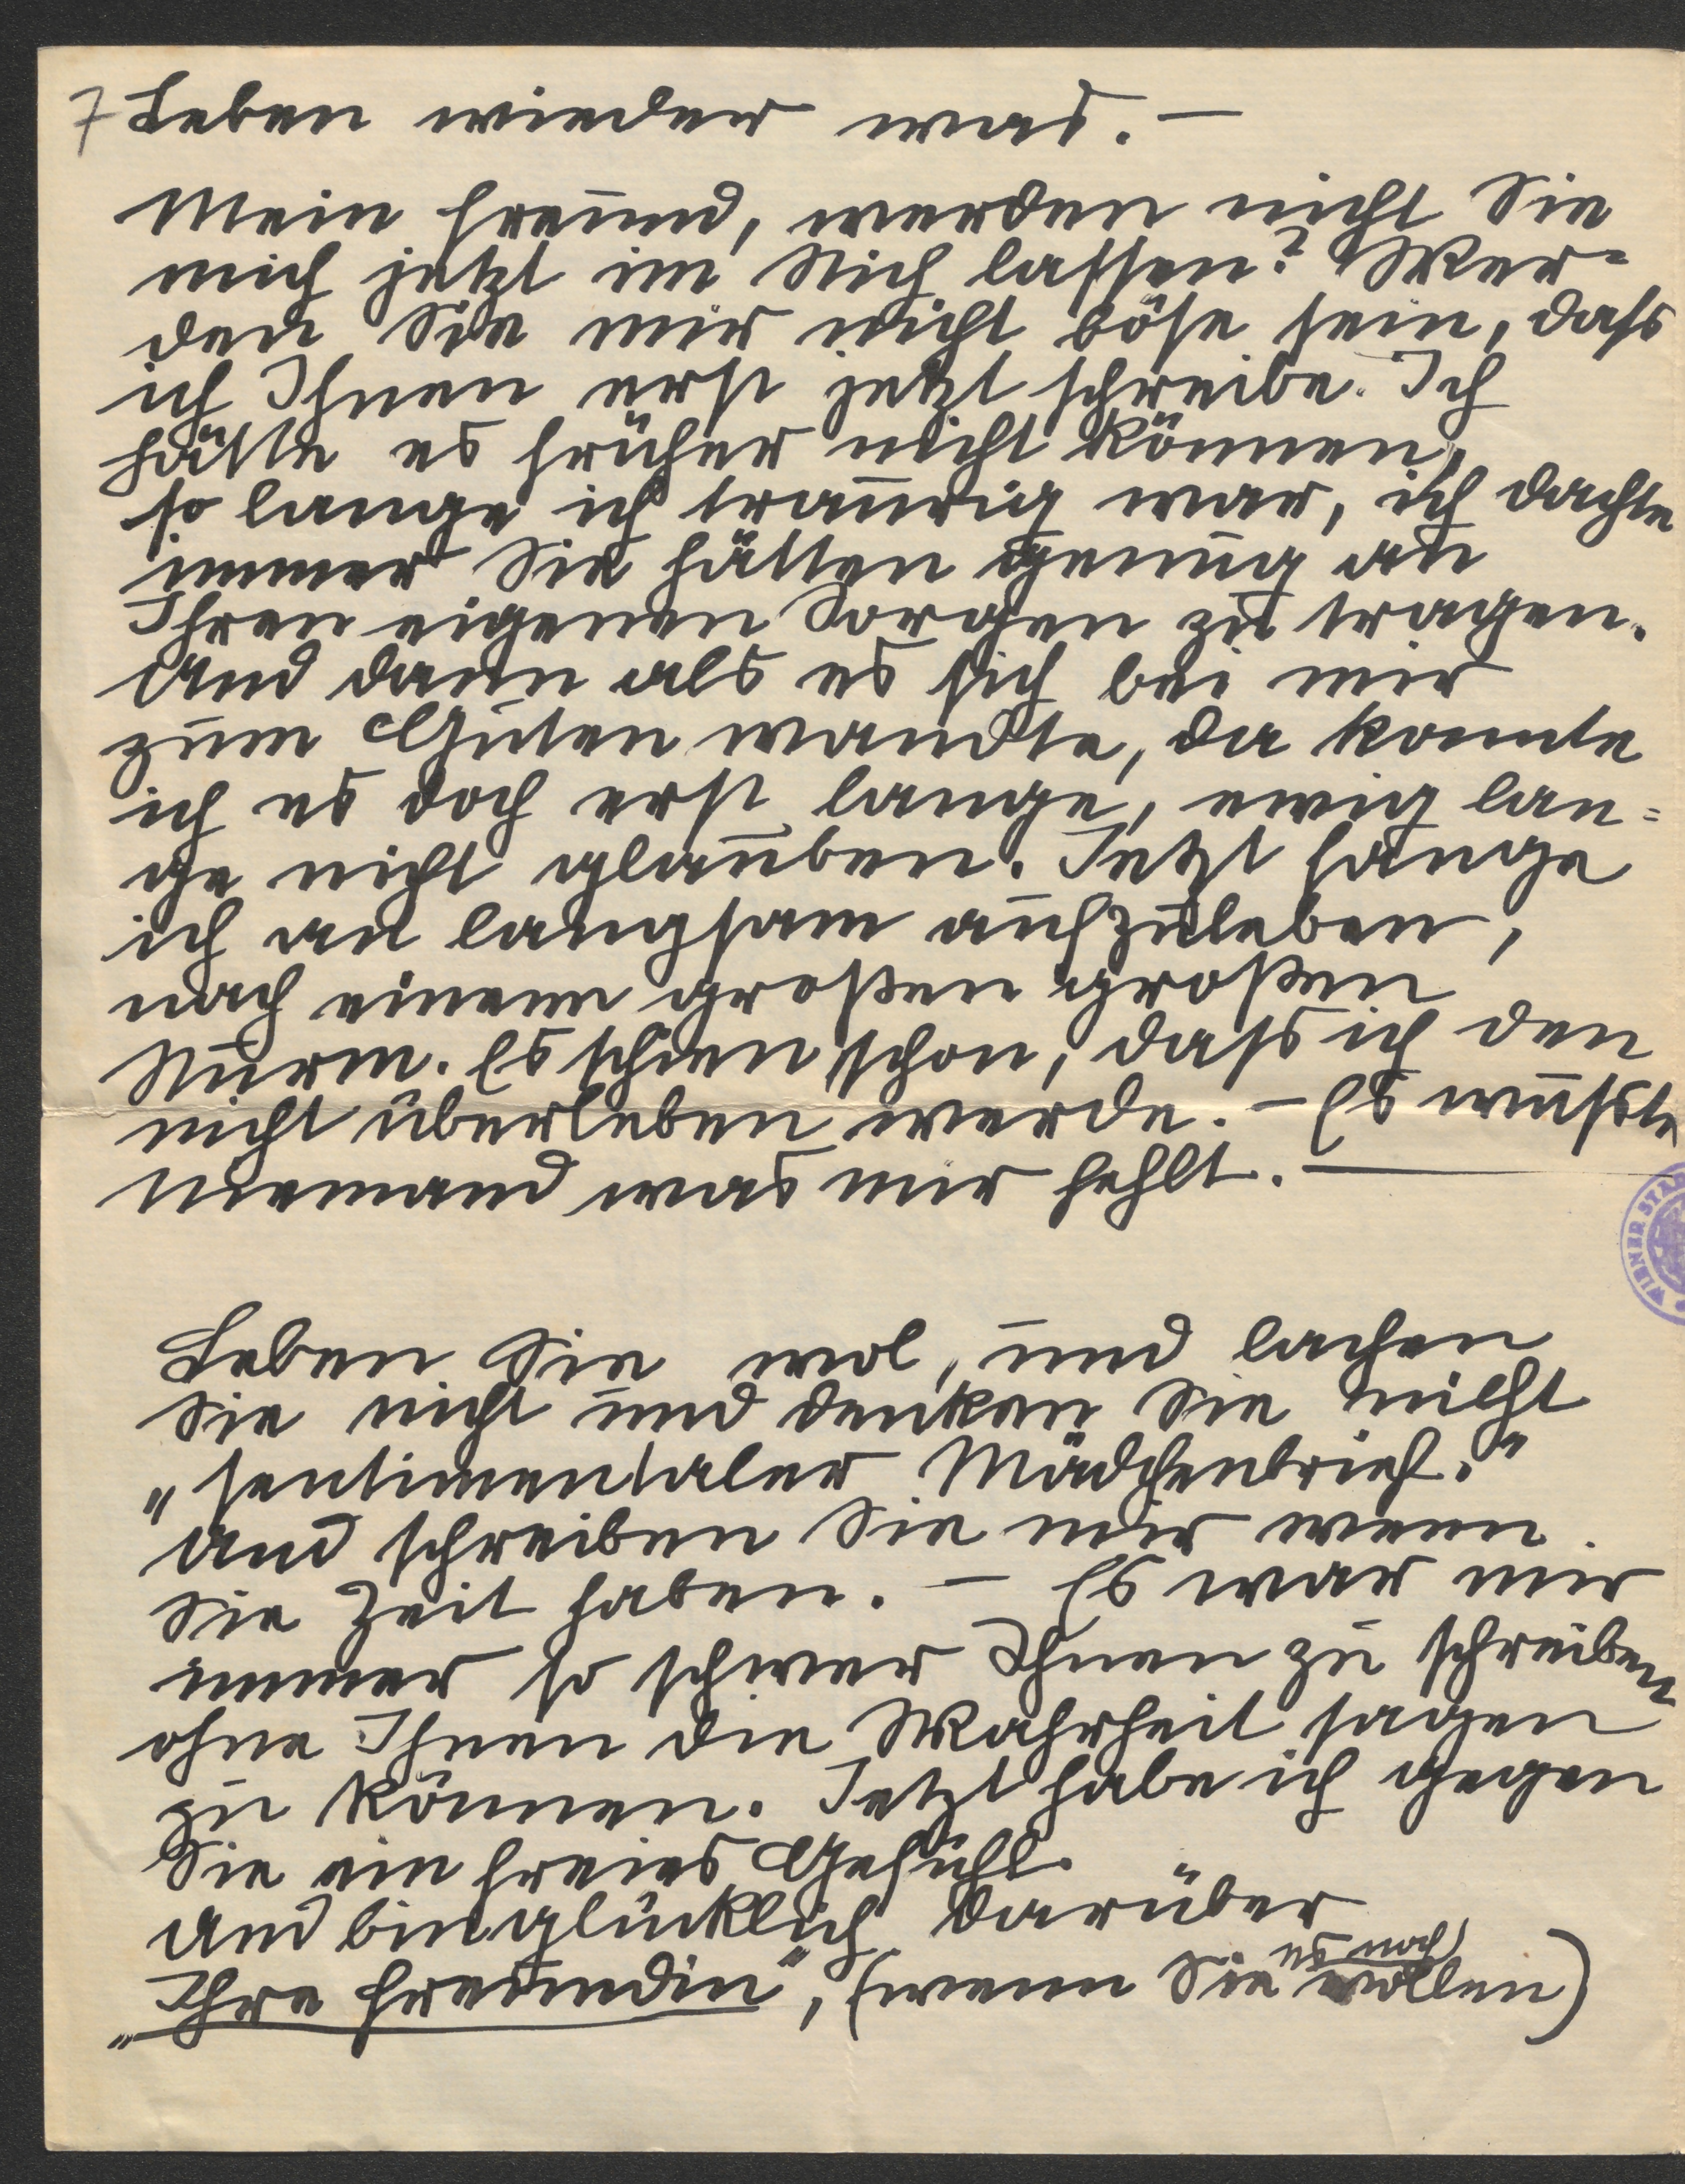 7 Leben wieder was. –
Mein Freund, werden nicht Sie
mich jetzt im Stich lassen? Wer=
den Sie mir nicht böse sein, dass
ich Ihnen erst jetzt schreibe. Ich
hätte es früher nicht können,
so lange ich traurig war, ich dachte
immer Sie hätten genug an
Ihren eigenen Sorgen zu tragen.
Und dann als es sich bei mir
zum Guten wandte, da konnte
ich es doch erst lange, ewig lan=
ge nicht glauben. Jetzt fange
ich an langsam aufzuleben,
nach einem großen großen
Sturm. Es schien schon, dass ich den
nicht überleben werde. – Es wusste
niemand was mir fehlt. –
WIENER STAD
Leben Sie wol, und lachen
Sie nicht und denken Sie nicht
„sentimentaler Mädchenbrief."
Und schreiben Sie mir wenn
Sie Zeit haben. – Es war mir
immer so schwer Ihnen zu schreiben
ohne Ihnen die Wahrheit sagen
zu können. Jetzt habe ich gegen
Sie ein freies Gefühl.
Und bin glücklich darüber
es noch
„Ihre Freundin", (wenn Sie wollen)